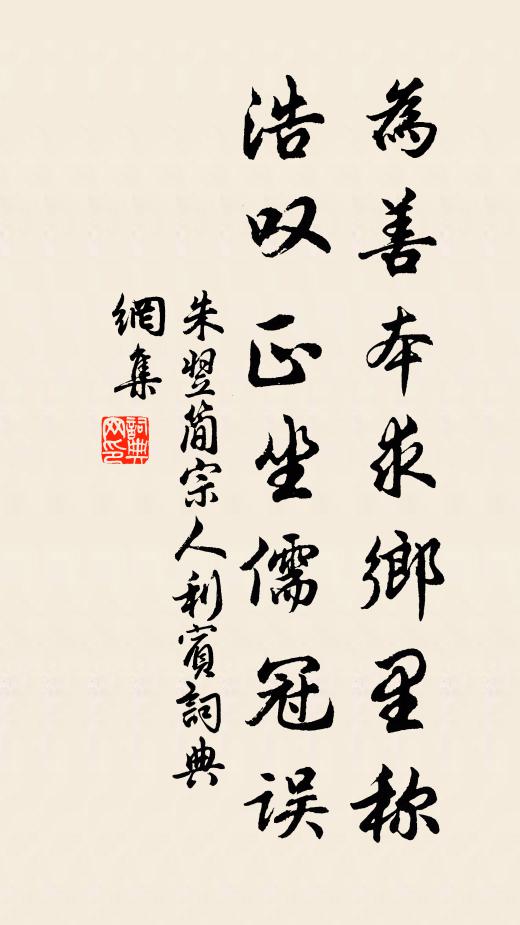 為善本求鄉里称
浩叹正坐儒冠误
朱翌簡宗人利賓詞典
網集
詞典网印